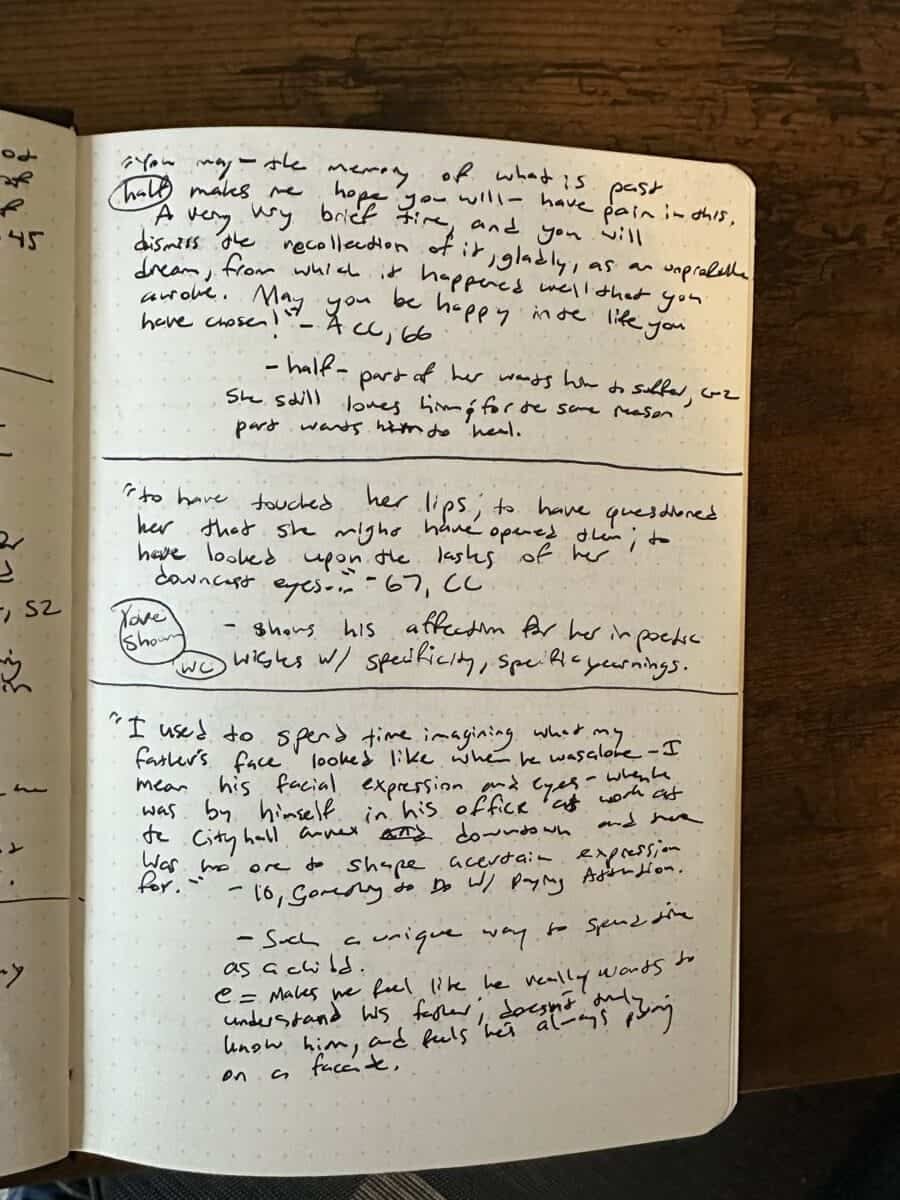 od
45
, 52
"You may – the memory of what is past
half makes me hope you will – have pain in this.
A very very brief time, and you will
dismiss the recollection of it, gladly, as an unprofitable
dream, from which it happened well that you
awoke. May you be happy in the life you
have chosen!" – ACC, 66
– half – part of her wants him to suffer, cuz
she still loves him & for the same reason
part wants him to heal.
"to have touched her lips; to have questioned
her that she might have opened them; to
have looked upon the lashes of her
downcast eyes..." – 67, CC
Love
Shown
– shows his affection for her in poetic
WC wishes w/ specificity, specific yearnings.
"I used to spend time imagining what my
father's face looked like when he was alone – I
mean his facial expression and eyes – when he
was by himself in his office at work at
the City hall annex downtown and there
was no one to shape a certain expression
for." – 10, Something to Do W/ Paying Attention.
– Such a unique way to spend time
as a child.
e = Makes me feel like he really wants to
understand his father, doesn't truly
know him, and feels he's always putting
on a facade.